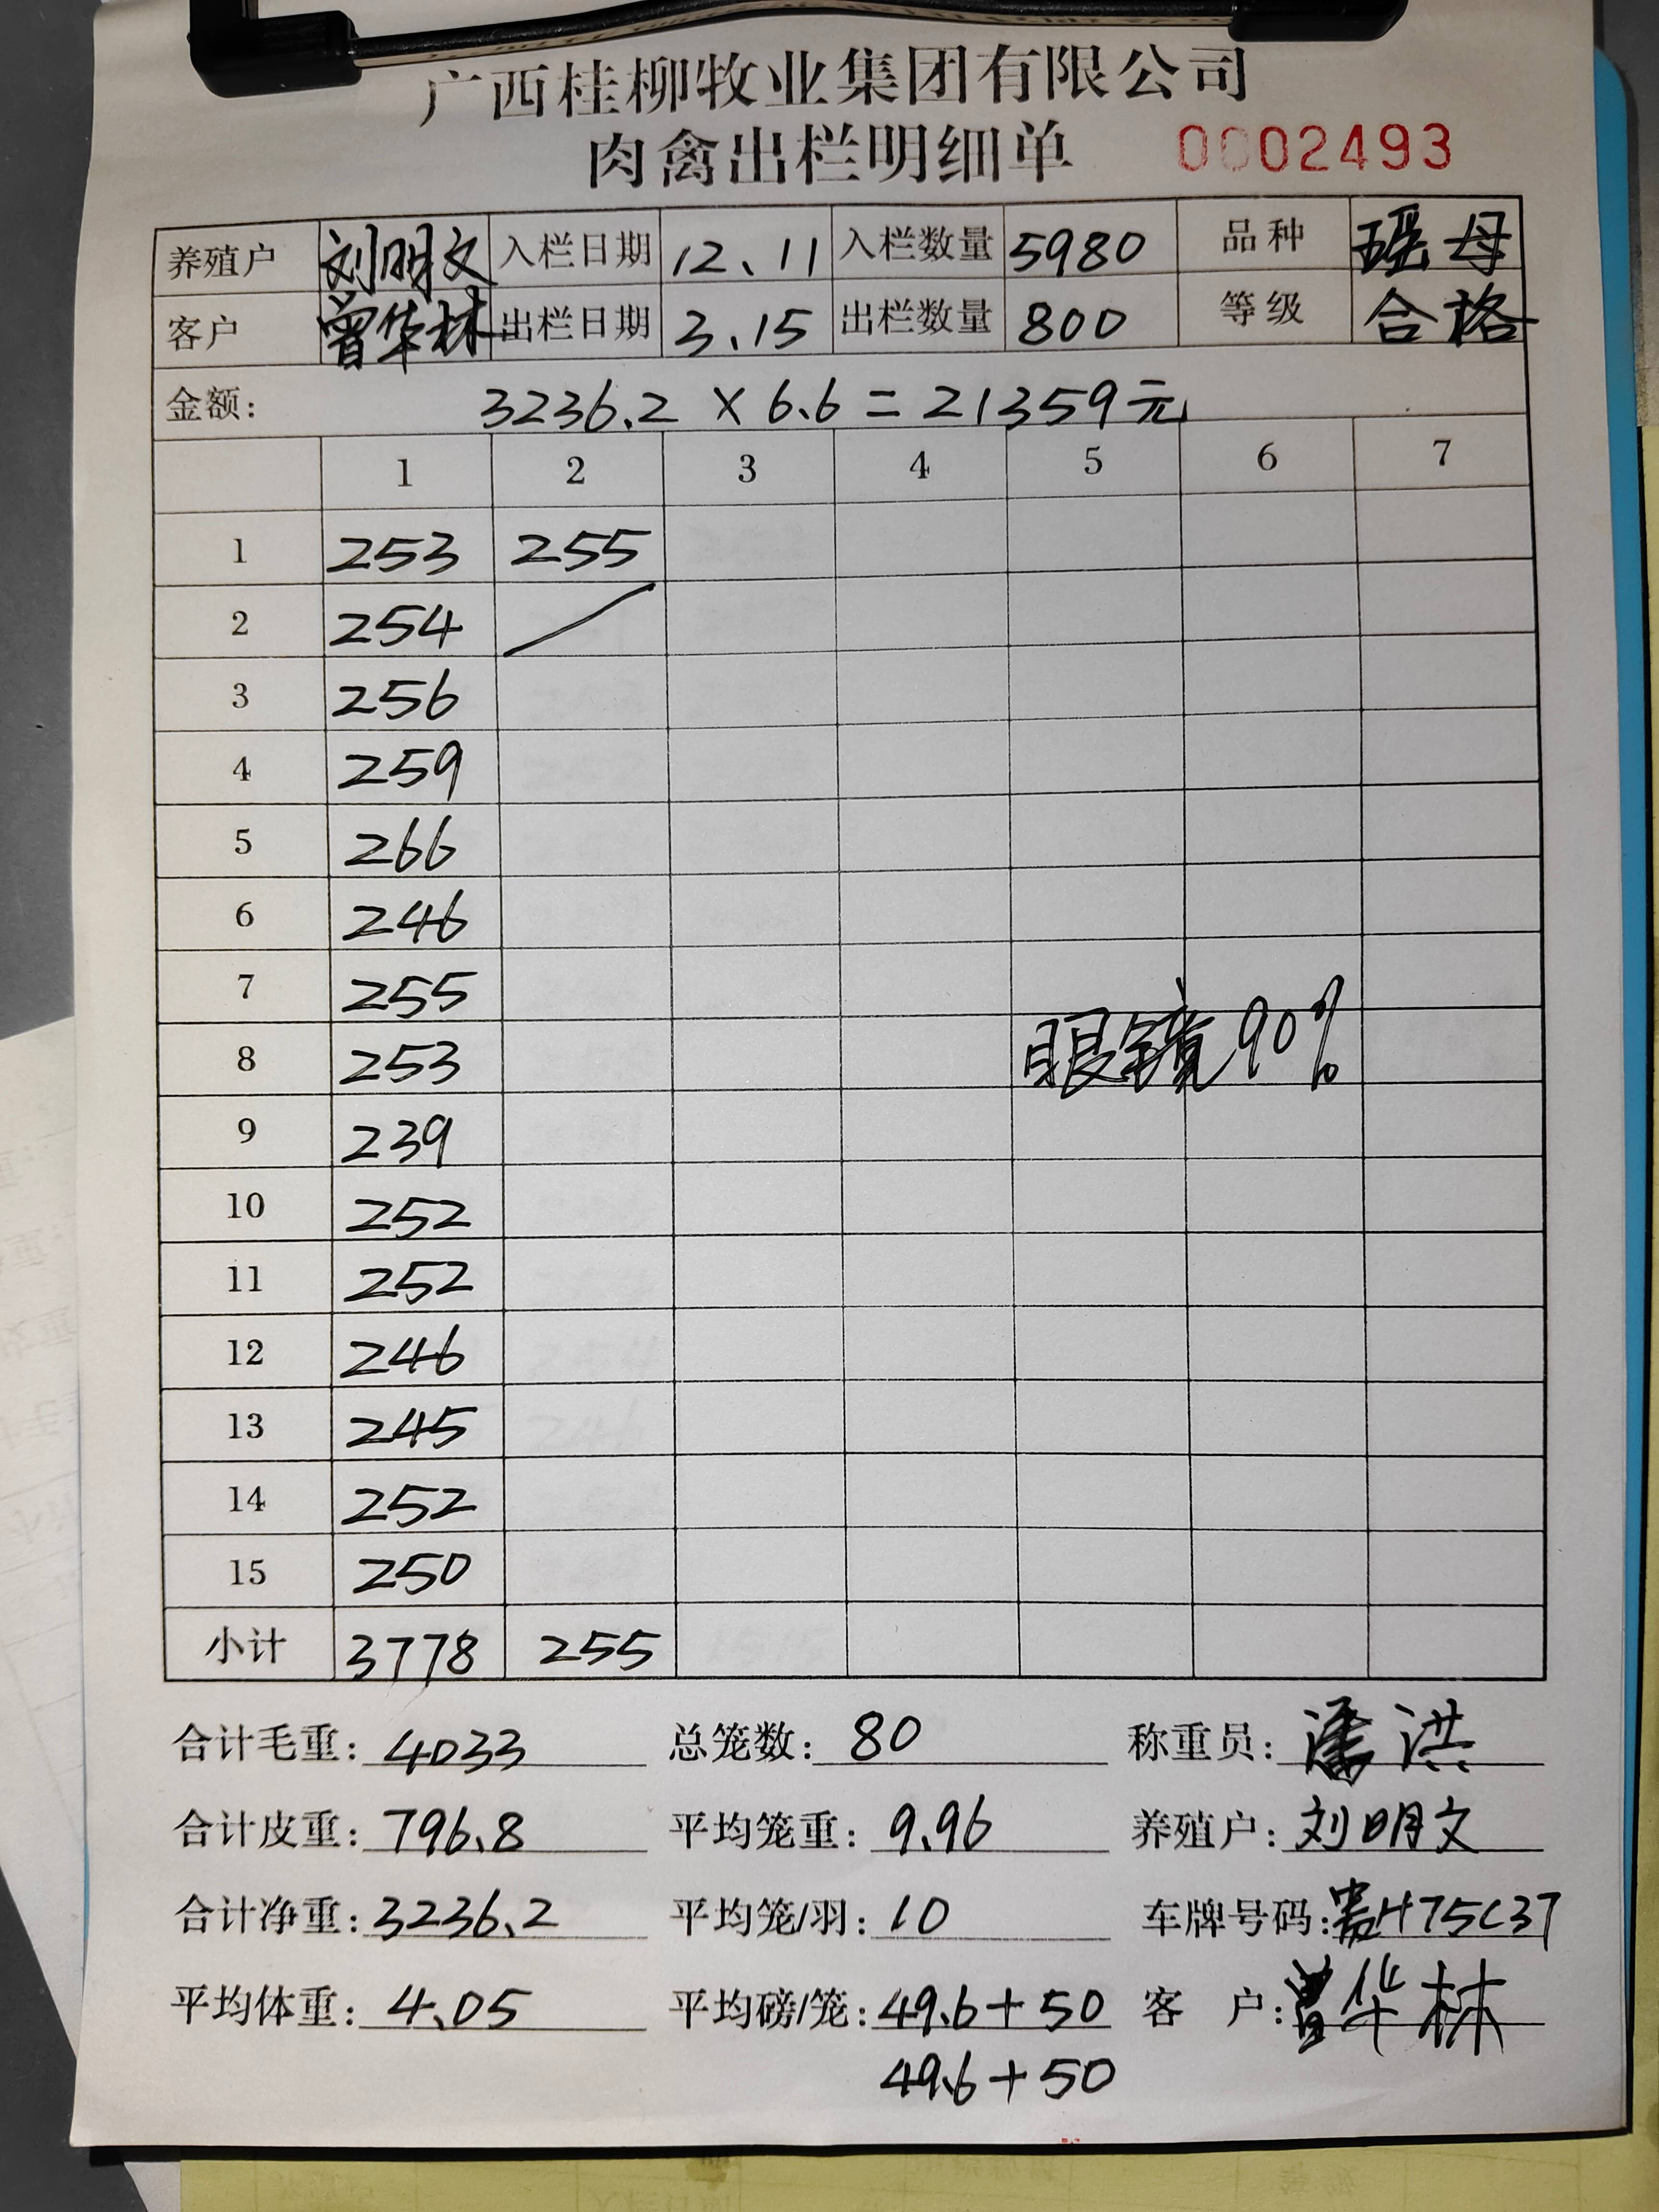 广西桂柳牧业集团有限公司
肉禽出栏明细单 0002493
养殖户 刘明文 入栏日期 12、11 入栏数量 5980 品种 瑶母
客户 曾华林 出栏日期 3、15 出栏数量 800 等级 合格
金额: 3236.2 × 6.6 = 21359元
1 2 3 4 5 6 7
1 253 255
2 254
3 256
4 259
5 266
6 246
7 255
8 253 眼镜90%
9 239
10 252
11 252
12 246
13 245
14 252
15 250
小计 3778 255
合计毛重: 4033 总笼数: 80 称重员: 潘洪
合计皮重: 796.8 平均笼重: 9.96 养殖户: 刘明文
合计净重: 3236.2 平均笼/羽: 10 车牌号码: 贵H75C37
平均体重: 4.05 平均磅/笼: 49.6+50 客 户: 曾华林
49.6+50